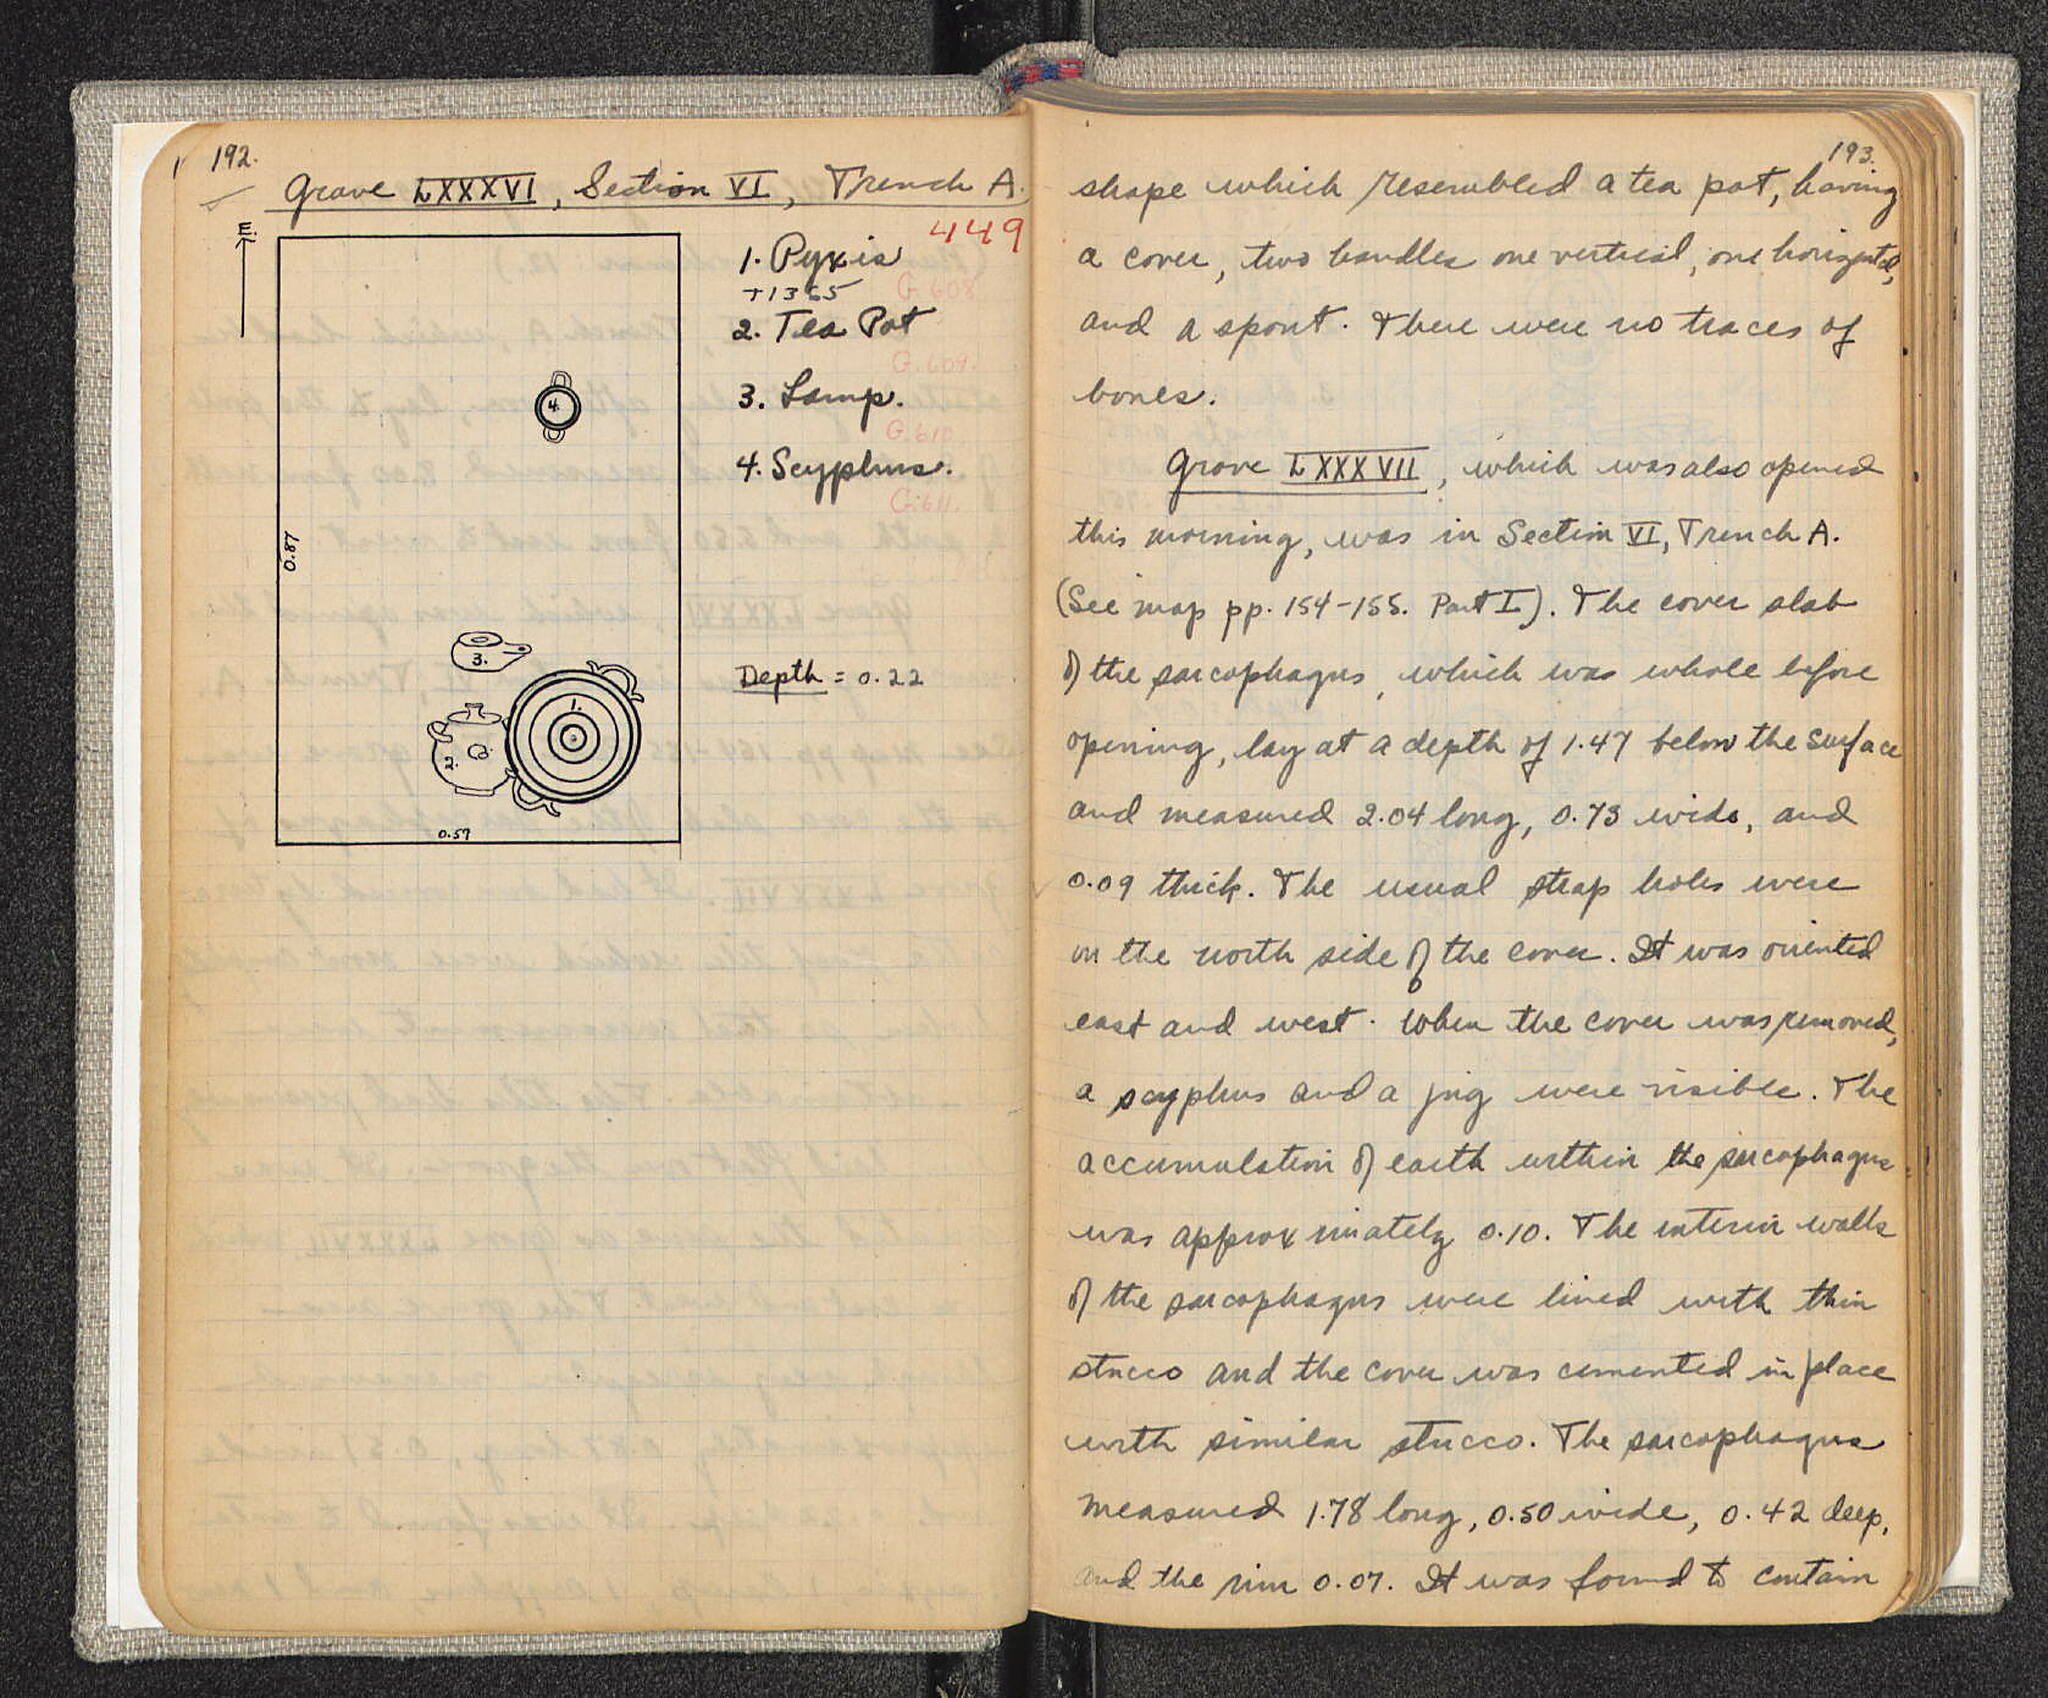 192.
Grave LXXXVI, Section VI, Trench A.
449
E.
1. Pyxis
+1365 G.608
2. Tea Pot
G.609.
3. Lamp.
G.610.
4. Scyphus.
G.611.
4.
0.87
3.
Depth = 0.22
1.
2.
0.57
193.
shape which resembled a tea pot, having
a cover, two handles one vertical, one horizontal,
and a spout. There were no traces of
bones.
Grave LXXXVII, which was also opened
this morning, was in Section VI, Trench A.
(See map pp. 154-155. Part I). The cover slab
of the sarcophagus, which was whole before
opening, lay at a depth of 1.47 below the surface
and measured 2.04 long, 0.73 wide, and
0.09 thick. The usual strap holes were
on the north side of the cover. It was oriented
east and west. When the cover was removed,
a scyphus and a jug were visible. The
accumulation of earth within the sarcophagus
was approximately 0.10. The interior walls
of the sarcophagus were lined with thin
stucco and the cover was cemented in place
with similar stucco. The sarcophagus
measured 1.78 long, 0.50 wide, 0.42 deep,
and the rim 0.07. It was found to contain